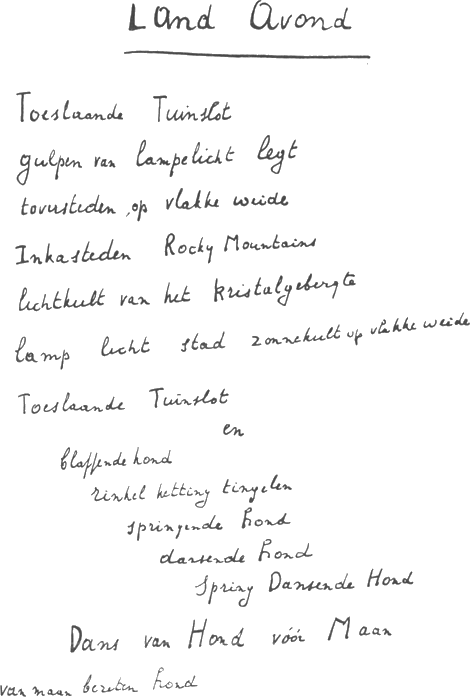 Land Avond
Toeslaande Tuinslot
gulpen van lampelicht legt
toversteden op vlakke weide
Inkasteden Rocky Mountains
lichtkult van het kristalgebergte
lamp licht stad zonnekult op vlakke weide
Toeslaande Tuinslot
en
blaffende hond
rinkel ketting tingelen
springende hond
dansende hond
Spring Dansende Hond
Dans van Hond vóór Maan
van maan bezeten hond